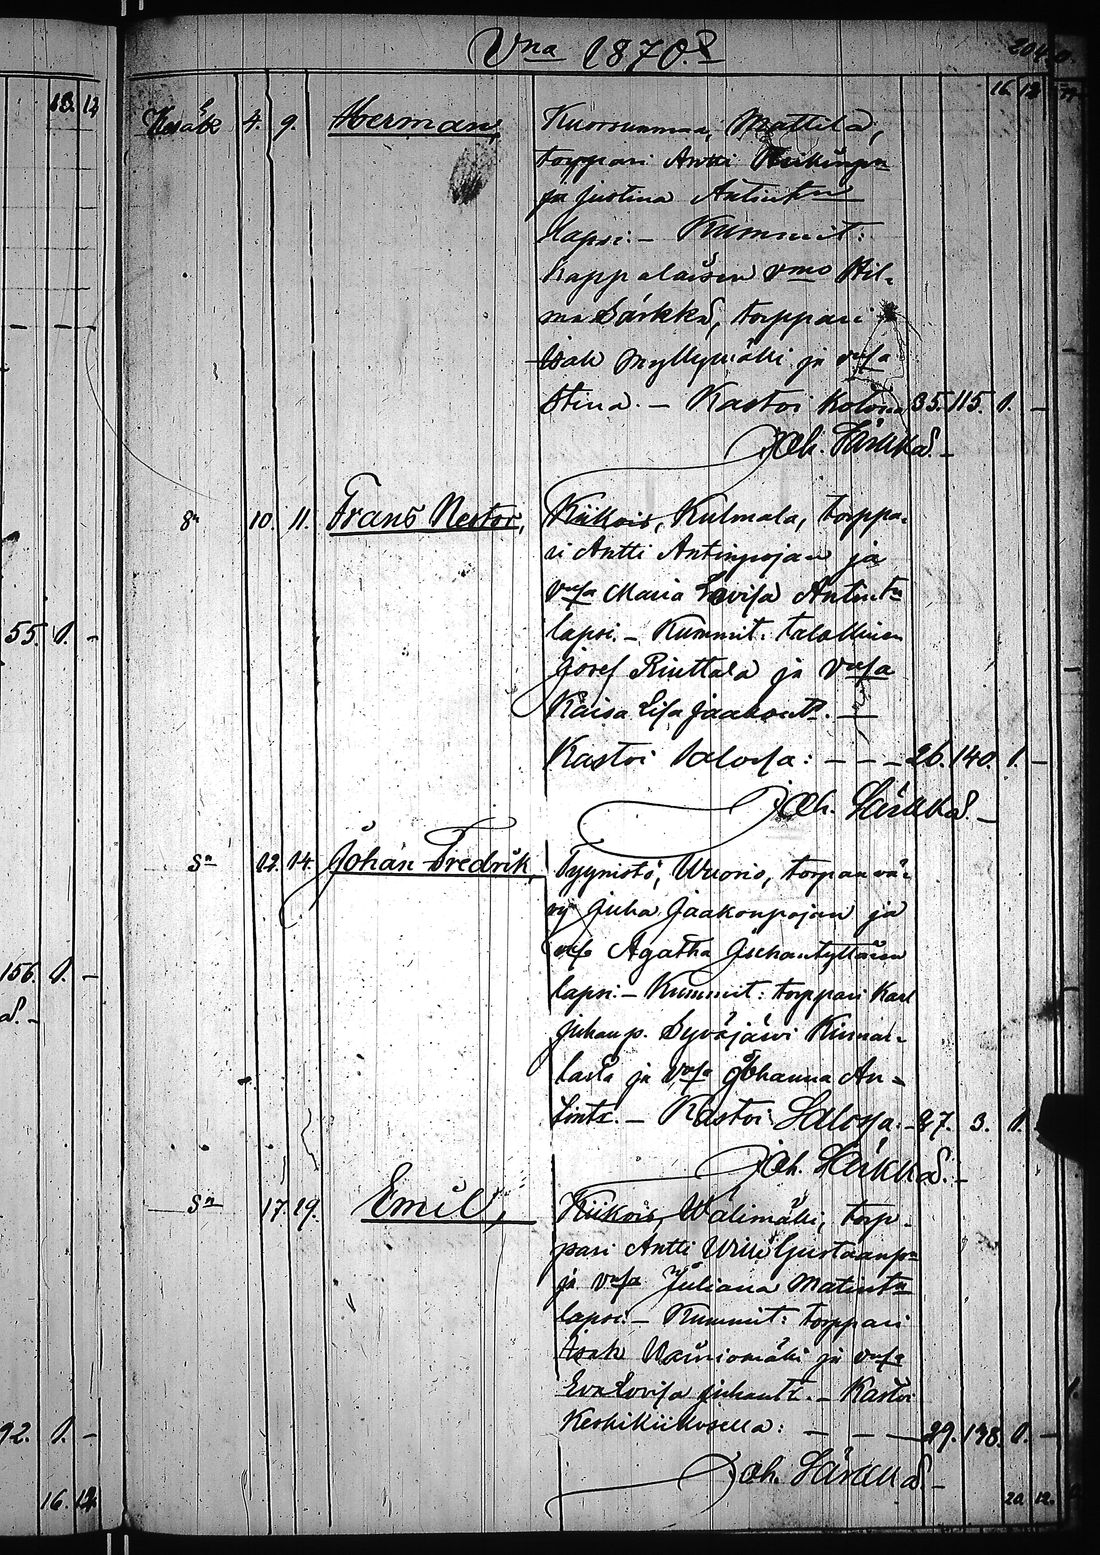 Vna 1870
204.
16 12
13. 12
Kesäk 4. 9. Herman, Kuorsumaa, Mattila,
torppari Antti Heikinpn
ja Justina Antintn
lapsi. - Kummit:
kappalaisen vmo Hil-
ma Särkkä, torppari
Isak Myllymäki ja vaſa
Stina. - Kastoi kotona 35. 115. 0. -
Joh. Särkkä. -
Sn 10. 11. Frans Nestor, Kiikois, Kulmala, torppa-
ri Antti Antinpojan ja
vaſa Maria Loviſa Antintn
lapsi. - Kummit: talollinen
Josef Rinttala ja vaſa
Kaisa Liſa Jaakont. -
Kastoi Saloſsa: - - - 26. 140. 1. -
Joh. Särkkä. -
Sn 12. 14. Johan Fredrik, Tyynistö, Wuorio, torpanvä-
vy Juha Jaakonpojan ja
vaſ Agatha Juhantyttären
lapsi. - Kummit: torppari Karl
Juhanp. Syväjärvi Kinnai-
lasta ja vaſa Johanna An-
tintr. - Kastoi Saloſsa. - 27. 3. 0.
Joh. Särkkä. -
Sn 17. 19. Emil, Kiikois, Wälimäki, torp-
pari Antti Wille Gustaanpn
ja vaſa Juliana Matintn
lapsi. - Kummit: torppari
Isak Wäiniomäki ja vaſa
Eva Loviſa Juhant. - Kastoi
Keskikiikosella: - - - 29. 198. 0. -
Joh. Särkkä. -
20. 12.
55. 0. -
156. 0. -
92. 0. -
16. 12.